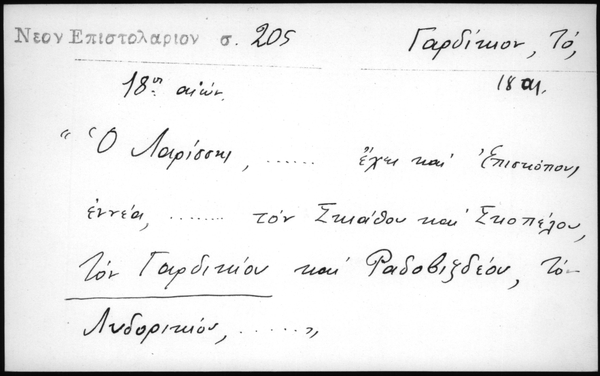 Νεον Επιστολαριον σ. 205
Γαρδίκιον, Τό,
18ος αἰών.
18 αι.
" Ὁ Λαρίσσης, ...... ἔχει καί Ἐπισκόπους
ἐννέα, ........ τόν Σκιάθου καί Σκοπέλου,
τόν Γαρδικίου καί Ραδοβιζδέου, τό
Λυδορικίου, ...... "